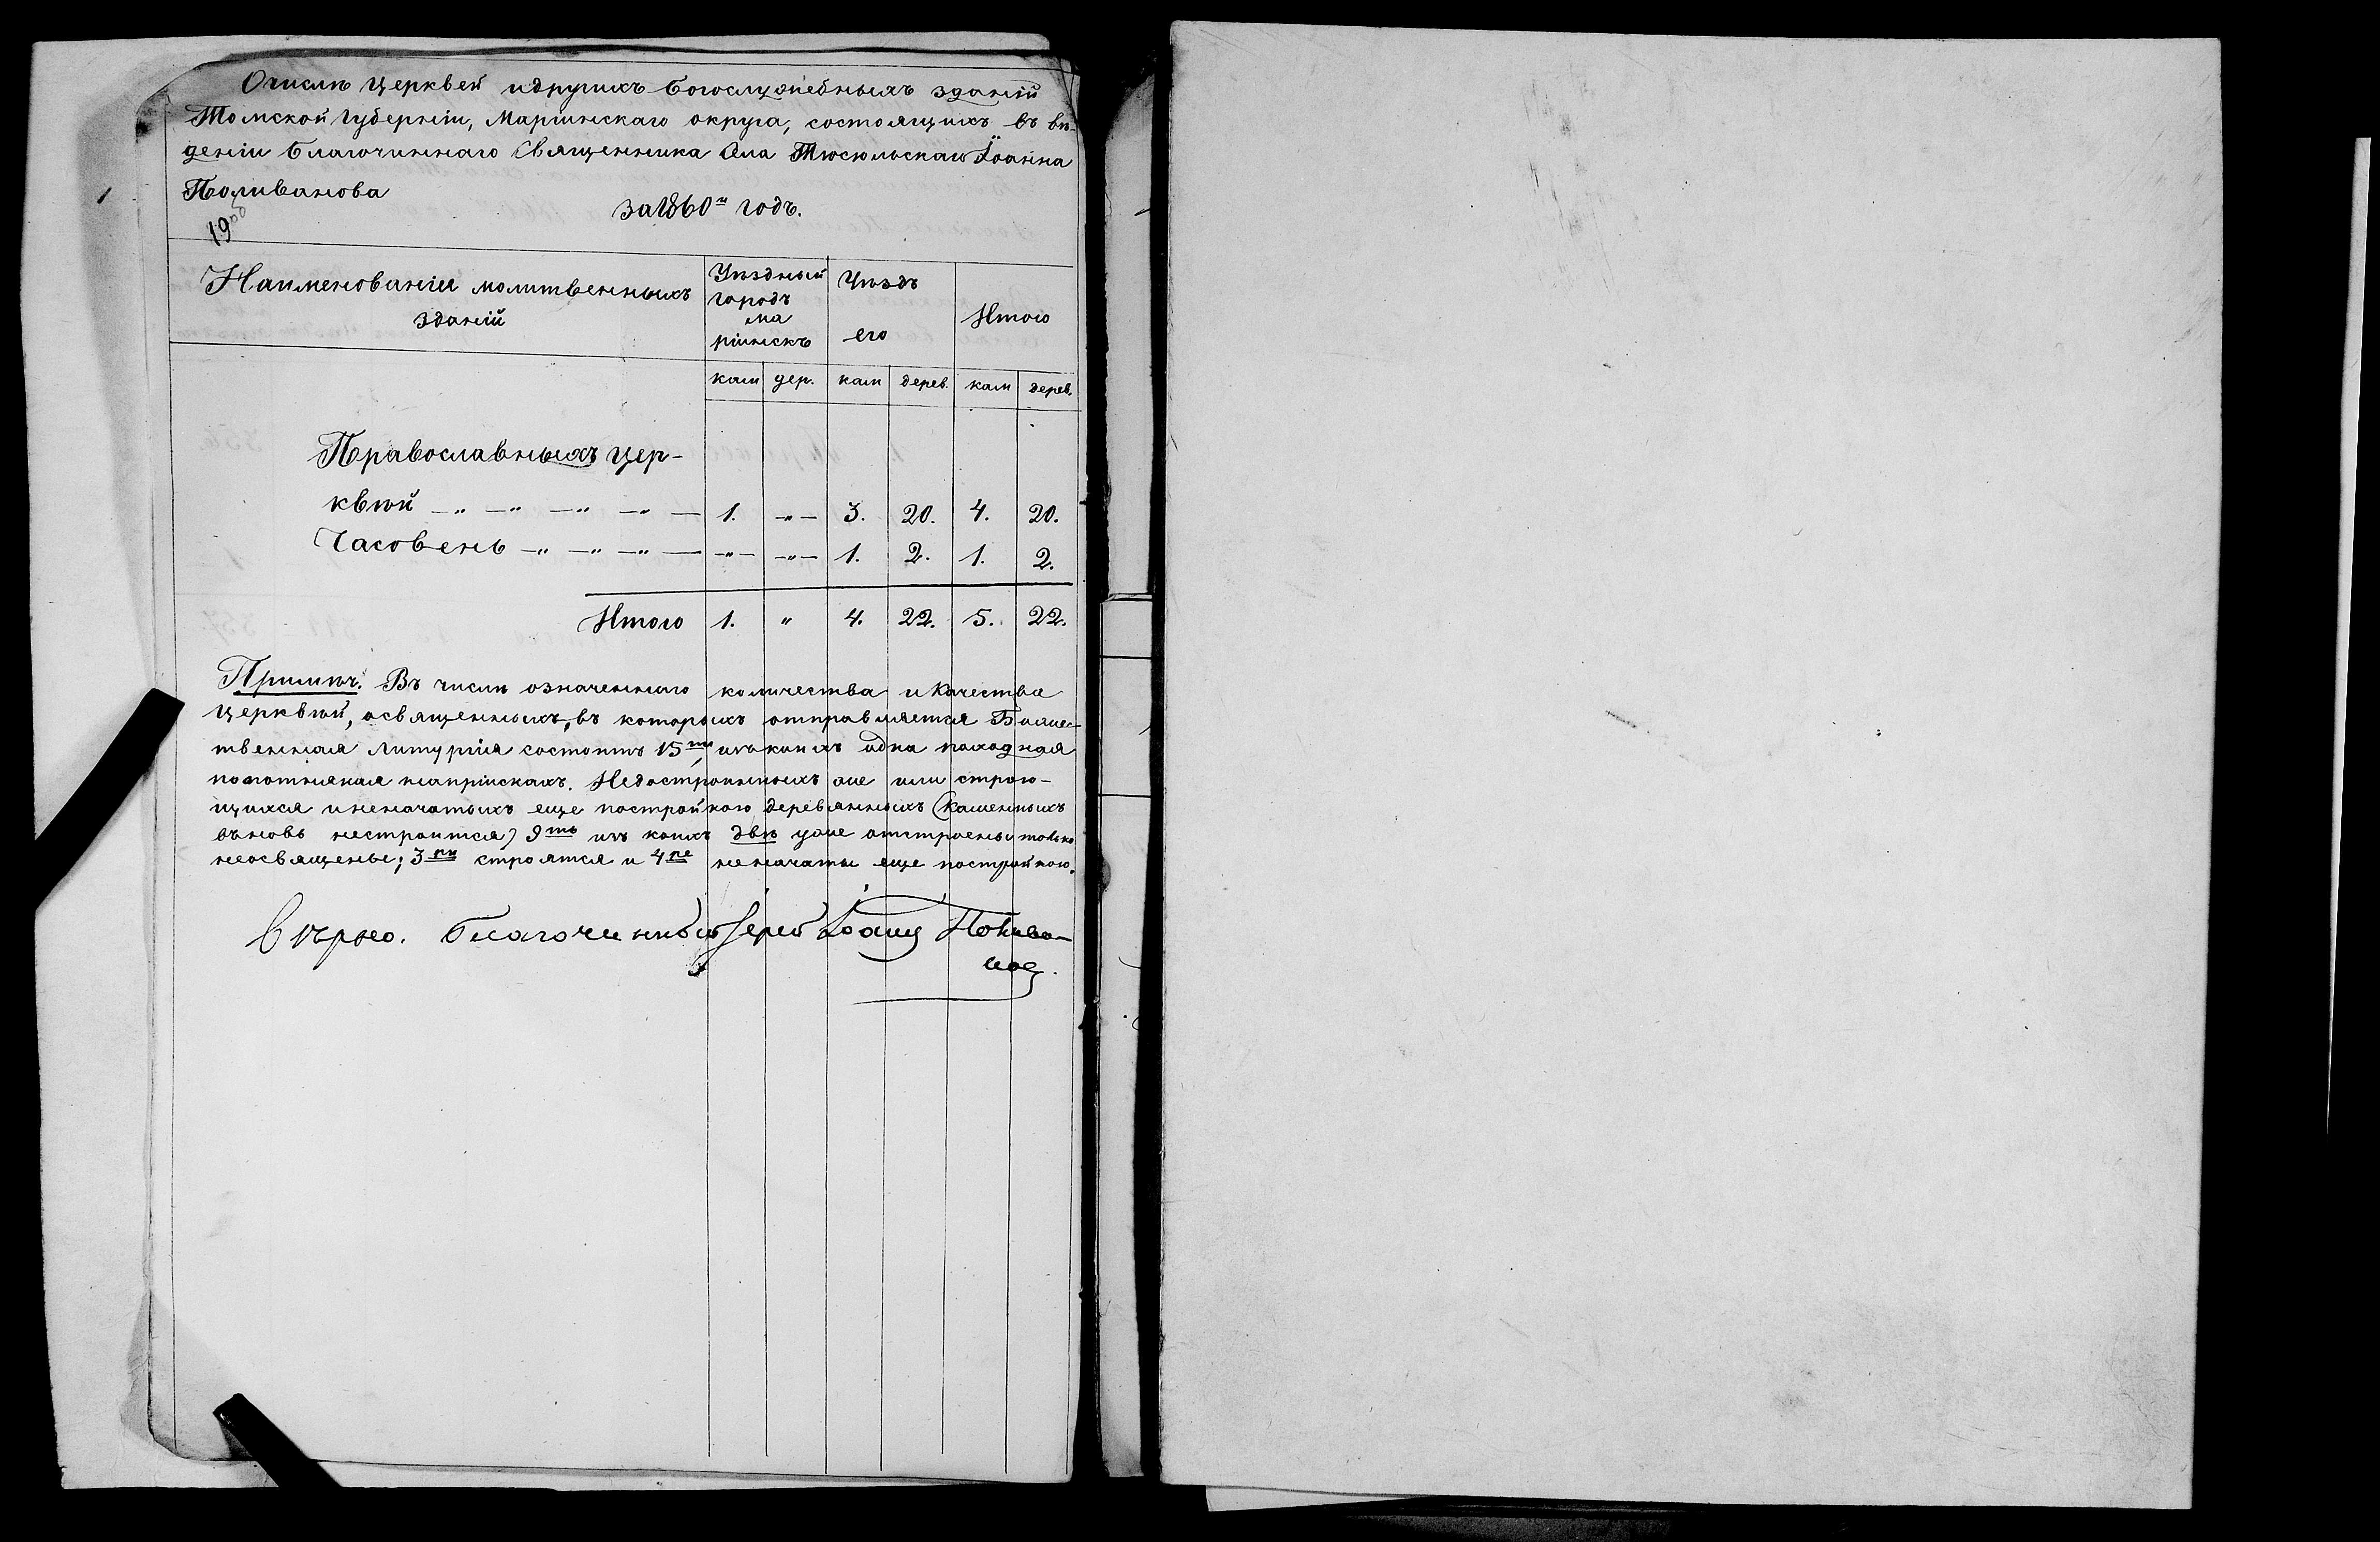 О числѣ церквей и другихъ Богослужебныхъ зданій
Томской Губерніи, Маріинскаго округа, состоящихъ въ вѣ-
деніи Благочиннаго Священника Села Тюсюльскаго Іоанна
Поливанова
за 1860й годъ.
19
Наименованіи молитвенныхъ зданій | Уѣздный городъ Маріинскъ | Уѣздъ его | Итого
кам | дер. | кам | дерев. | кам | дерев.
Православныхъ цер-
квѣй — „ — „ — „ — „ — 1. — „ — 3. 20. 4. 20.
Часовень — „ — „ — „ — — „ — — „ — 1. 2. 1. 2.
Итого 1. „ 4. 22. 5. 22.
Примѣч. Въ числѣ означеннаго количества и качества
Церквѣй, освященныхъ, въ которыхъ отправляется Божес-
твенная Литургія состоитъ 15ть, изъ коихъ одна походная
полотняная на пріискахъ. Недостроенныхъ же или строю-
щихся и неначатыхъ еще постройкою деревянныхъ (каменныхъ
вновь нестроится) 9ть изъ коихъ двѣ уже отстроены только
неосвящены; 3ри строятся и 4ре неначаты еще постройкою.
Вѣрно. Благочинный Іерей Іоаннъ Полива-
новъ.